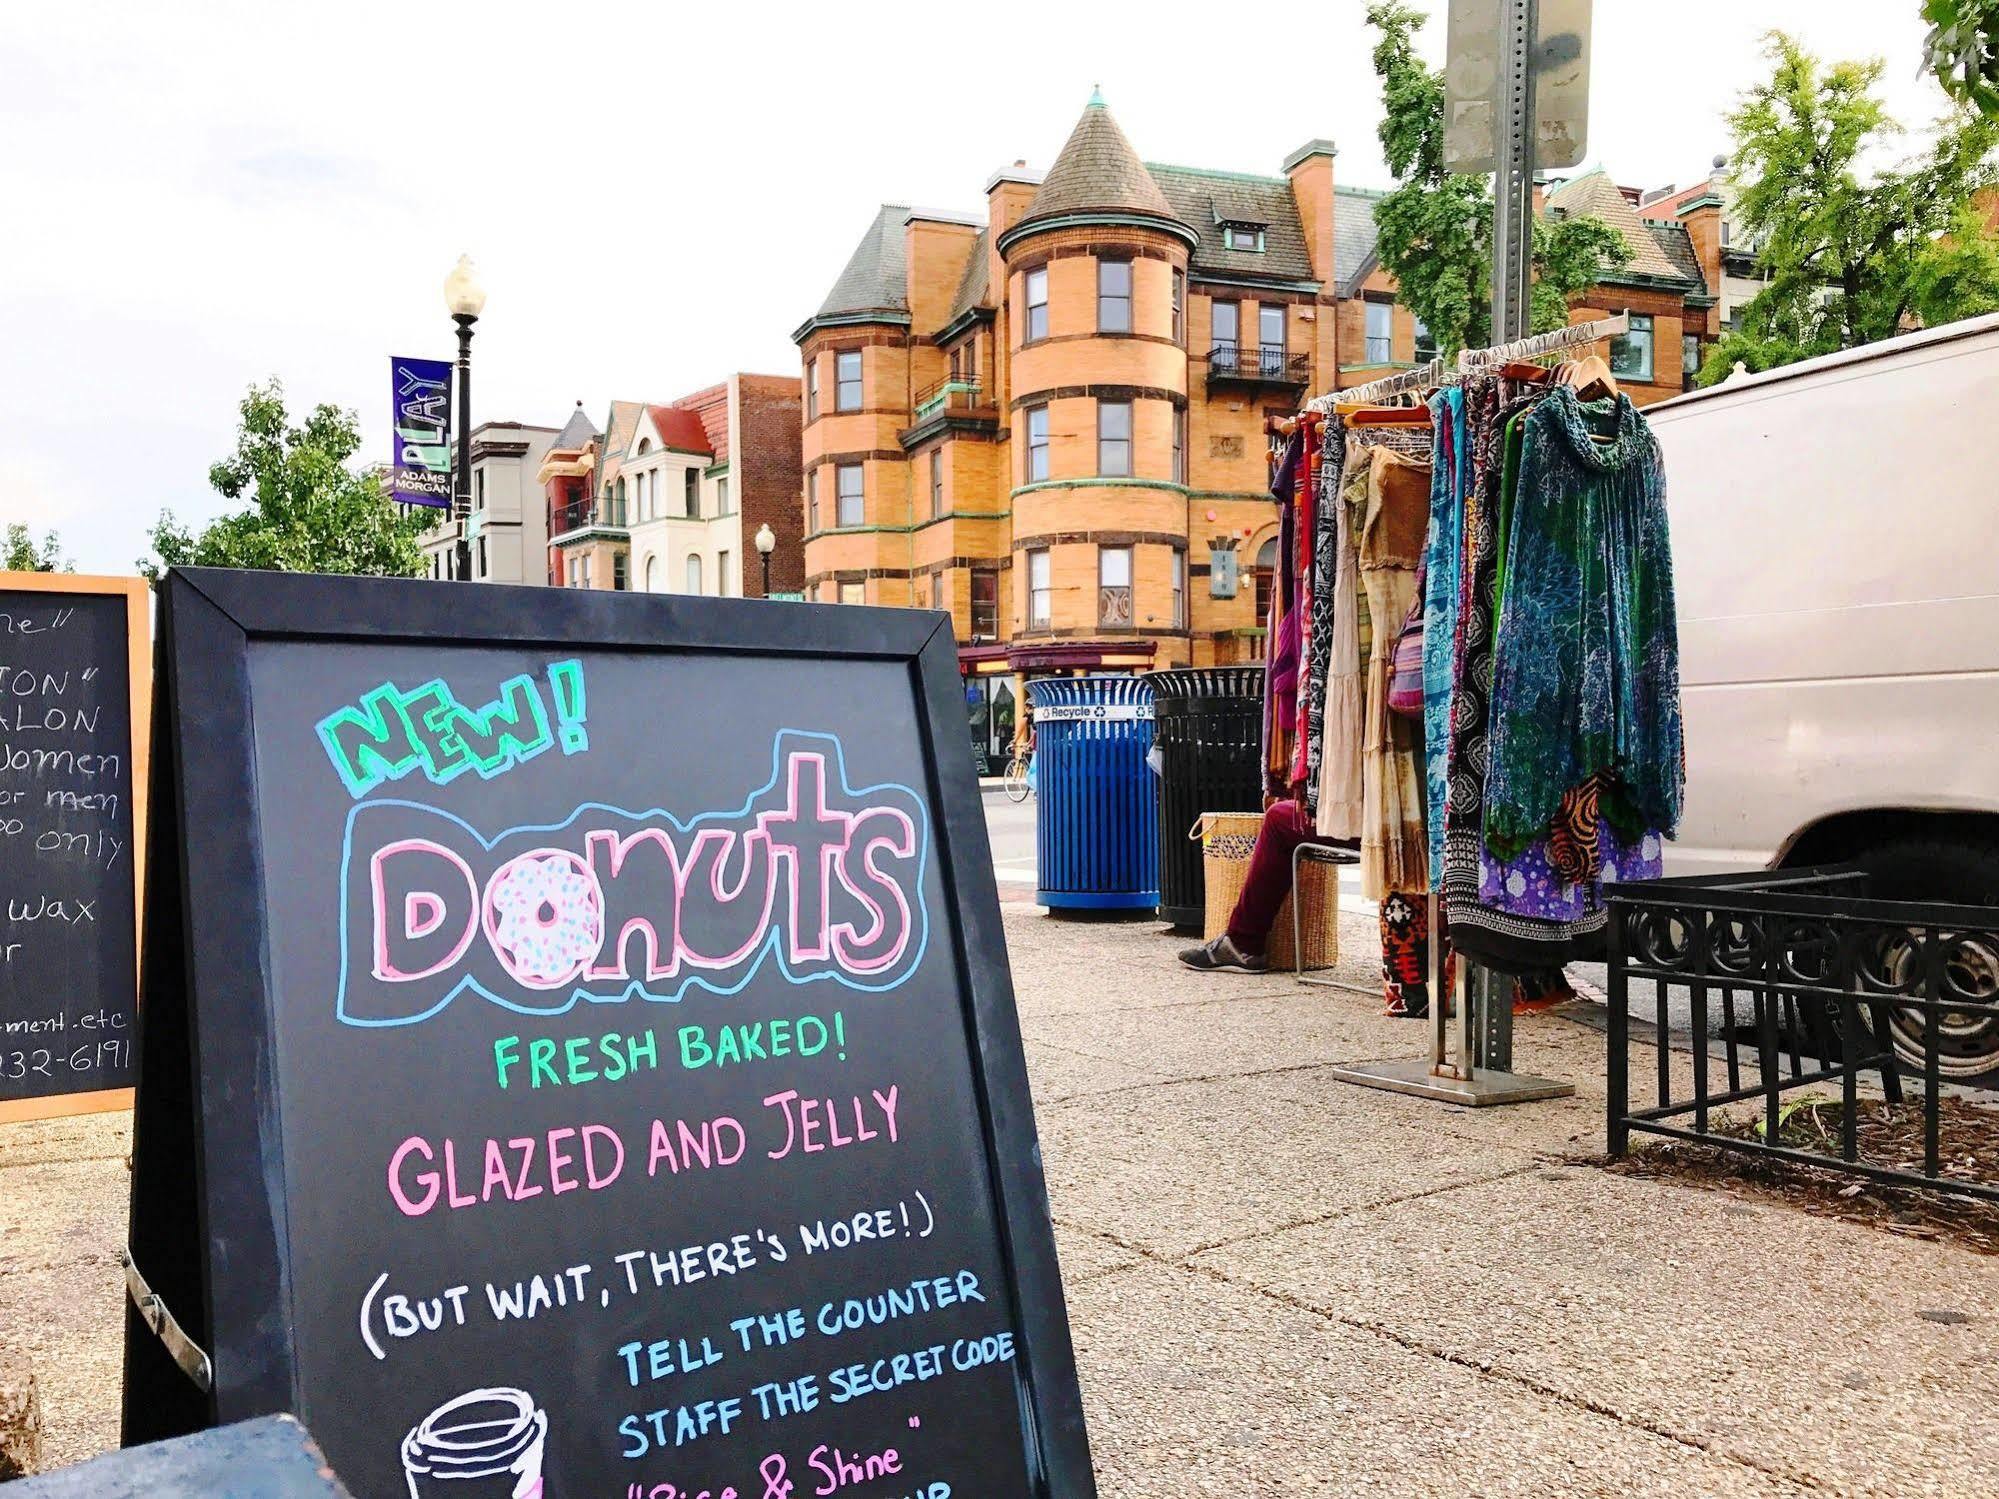 NEW!
DONUTS
FRESH BAKED!
GLAZED AND JELLY
(BUT WAIT, THERE'S MORE!)
TELL THE COUNTER
STAFF THE SECRET CODE
"Rise & Shine"
PLAY
ADAMS
MORGAN
Recycle
ON"
ALON
Women
or men
only
wax
ment.etc
232-6191